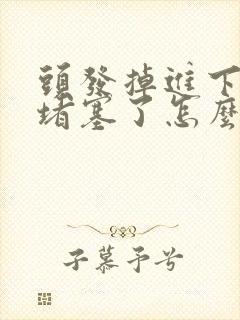 頭發掉進下
堵塞了怎麼
子慕予兮